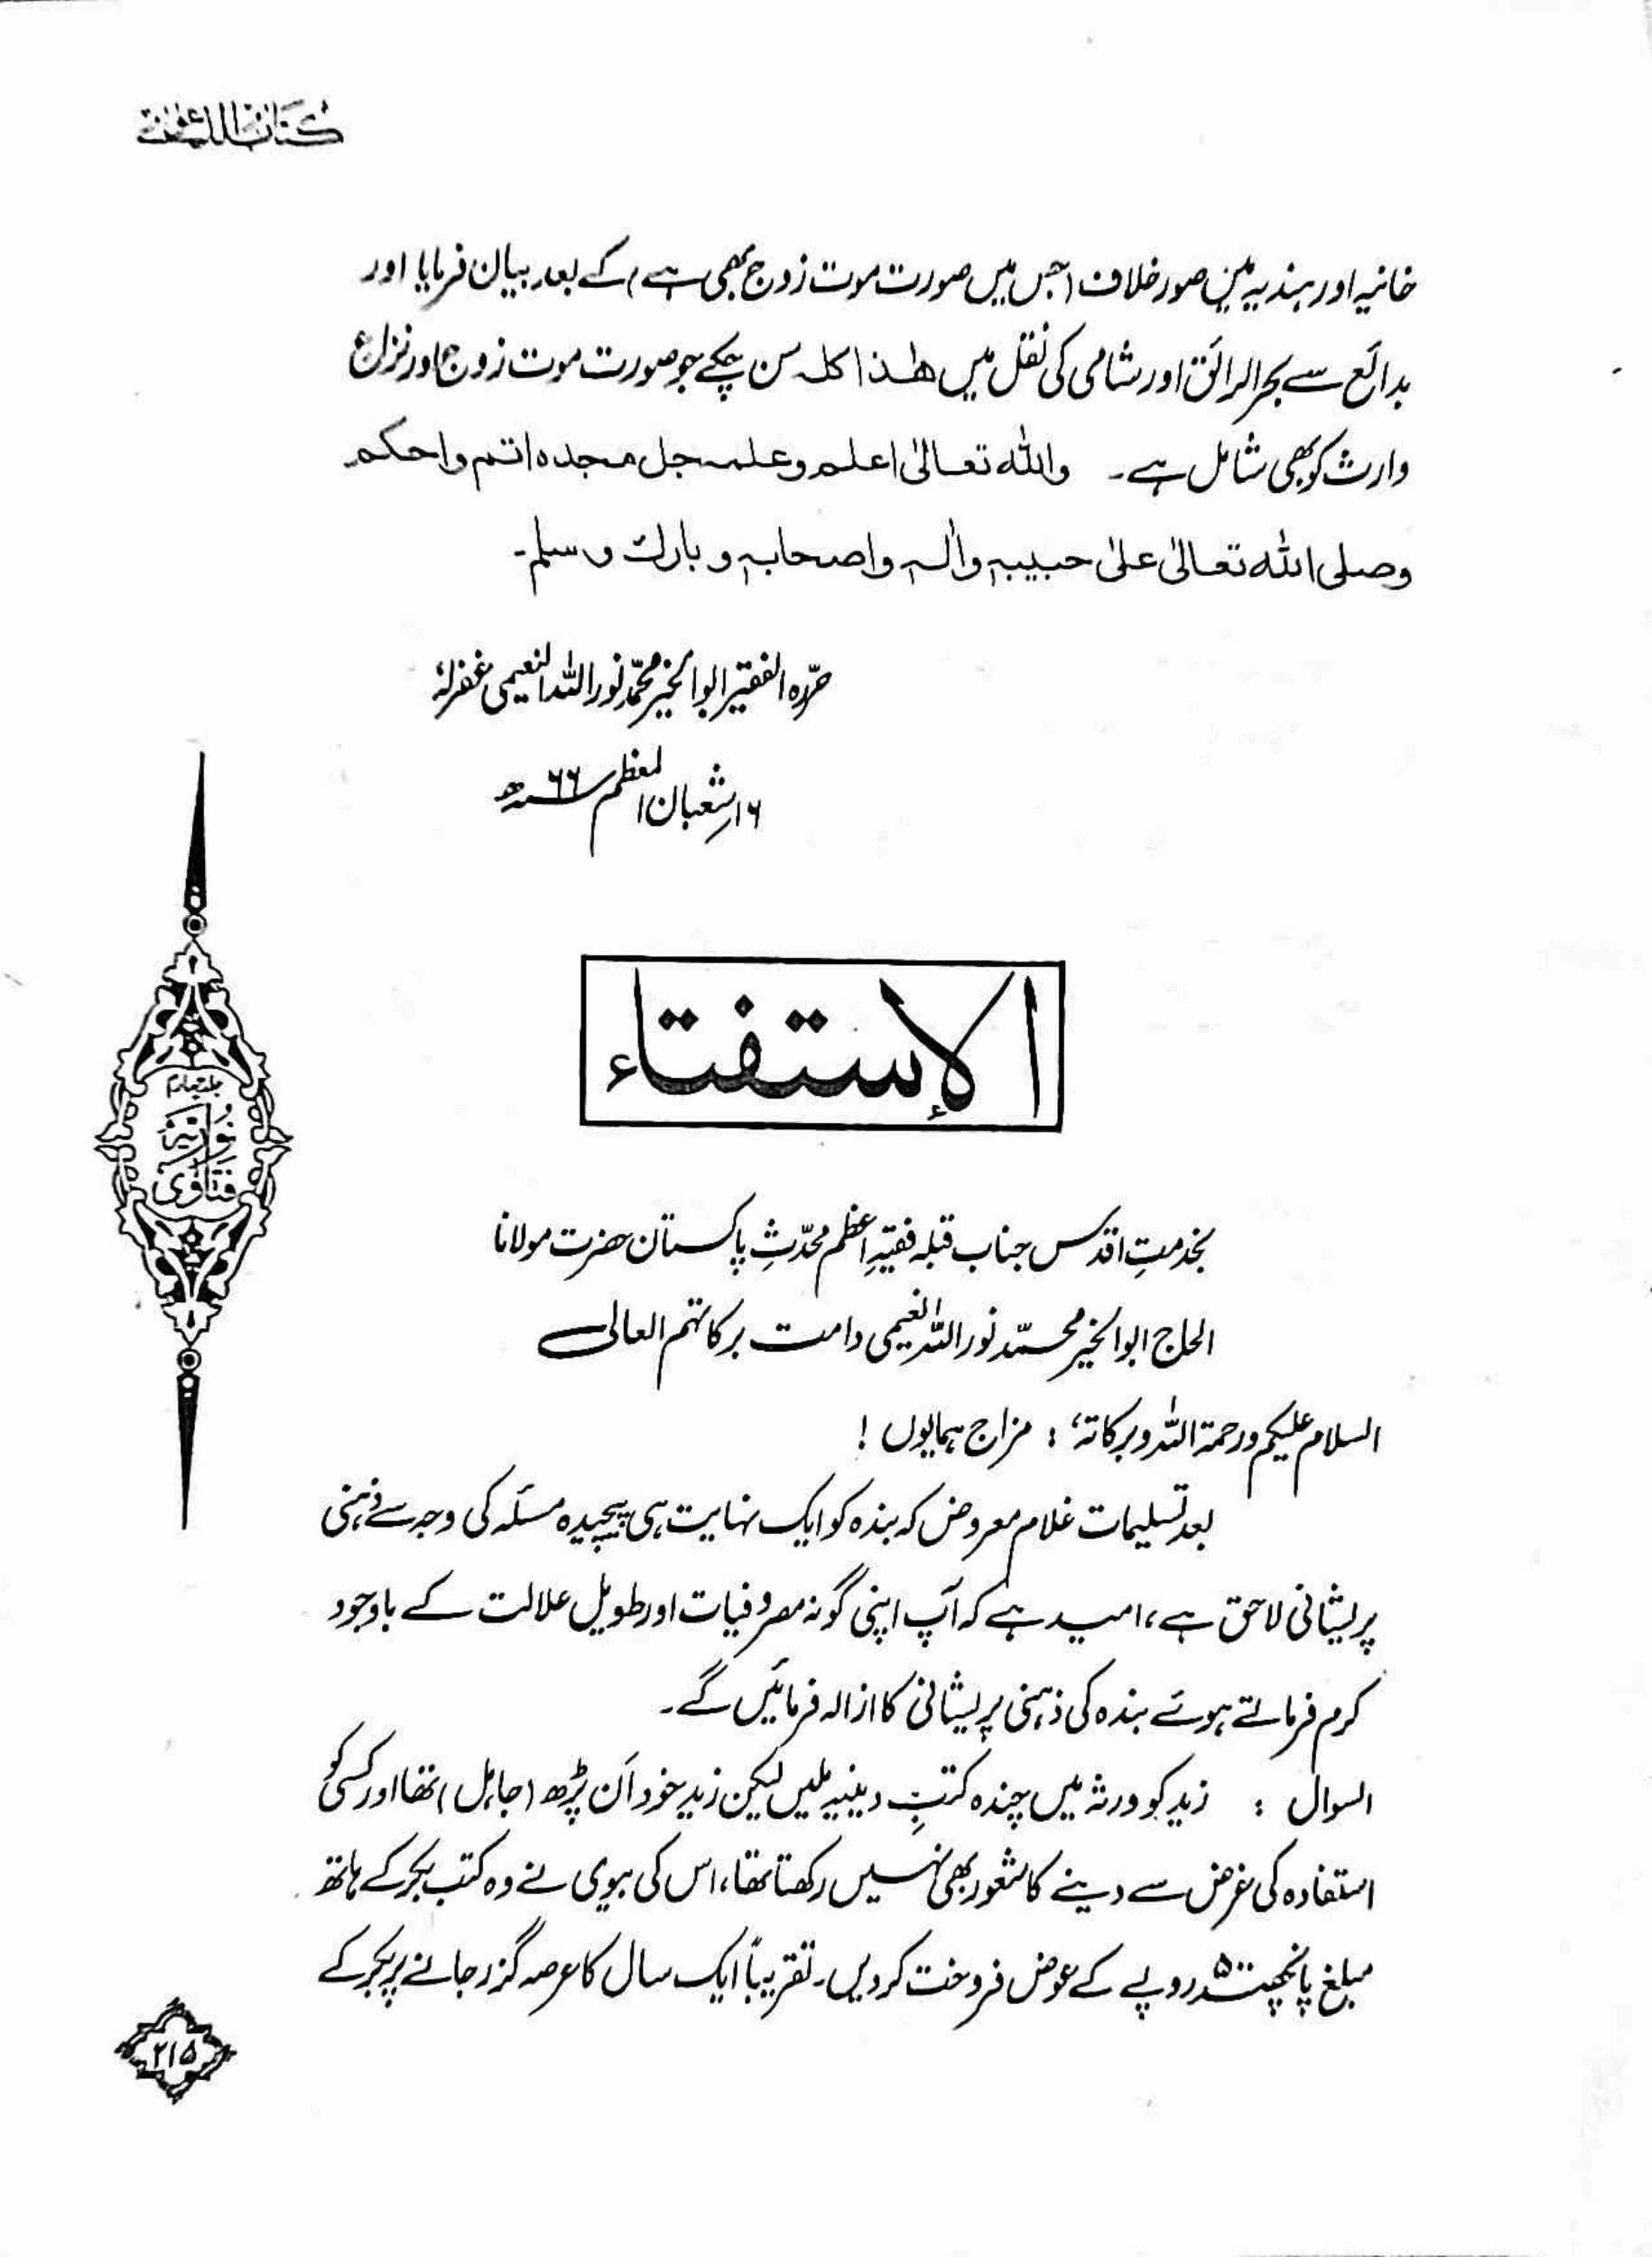 خانیہ اور ہندیہ میں صور خلاف (جس میں صورت موت زوج بھی ہے) کے بعد بیان فرمایا اور
بدائع سے بحر الرائق اور شامی کی نقل میں ھٰذا کلہ سن چکے جو صورت موت زوج اور نزاع
وارث کو بھی شامل ہے۔ واللہ تعالیٰ اعلم وعلمہ جل مجدہ اتم واحکم
وصلی اللہ تعالیٰ علیٰ حبیبہٖ واٰلہٖ واصحابہٖ وبارك وسلم۔
حرّرہ الفقیر ابو الخیر محمّد نور اللہ النعیمی غفرلہٗ
۱۶ شعبان المعظم سنہ ۶۶ھ
الإستفتاء
جلد چہارم
نوریہ
فتاویٰ
بخدمتِ اقدس جناب قبلہ فقیہِ اعظم محدّثِ پاکستان حضرت مولانا
الحاج ابو الخیر محمّد نور اللہ النعیمی دامت برکاتہم العالیہ
السلام علیکم ورحمۃ اللہ وبرکاتہٗ : مزاج ہمایوں !
بعد تسلیمات غلام معروض کہ بندہ کو ایک نہایت ہی پیچیدہ مسئلہ کی وجہ سے ذہنی
پریشانی لاحق ہے، امید ہے کہ آپ اپنی گونہ مصروفیات اور طویل علالت کے باوجود
کرم فرماتے ہوئے بندہ کی ذہنی پریشانی کا ازالہ فرمائیں گے۔
السوال : زید کو ورثہ میں چندہ کتبِ دینیہ ملیں لیکن زید خود اَن پڑھ (جاہل) تھا اور کسی کو
استفادہ کی غرض سے دینے کا شعور بھی نہیں رکھتا تھا، اس کی بیوی نے وہ کتب بکر کے ہاتھ
مبلغ پانچصد ۵۰۰ روپے کے عوض فروخت کردیں۔ تقریباً ایک سال کا عرصہ گزر جانے پر بکر کے
۲۱۵